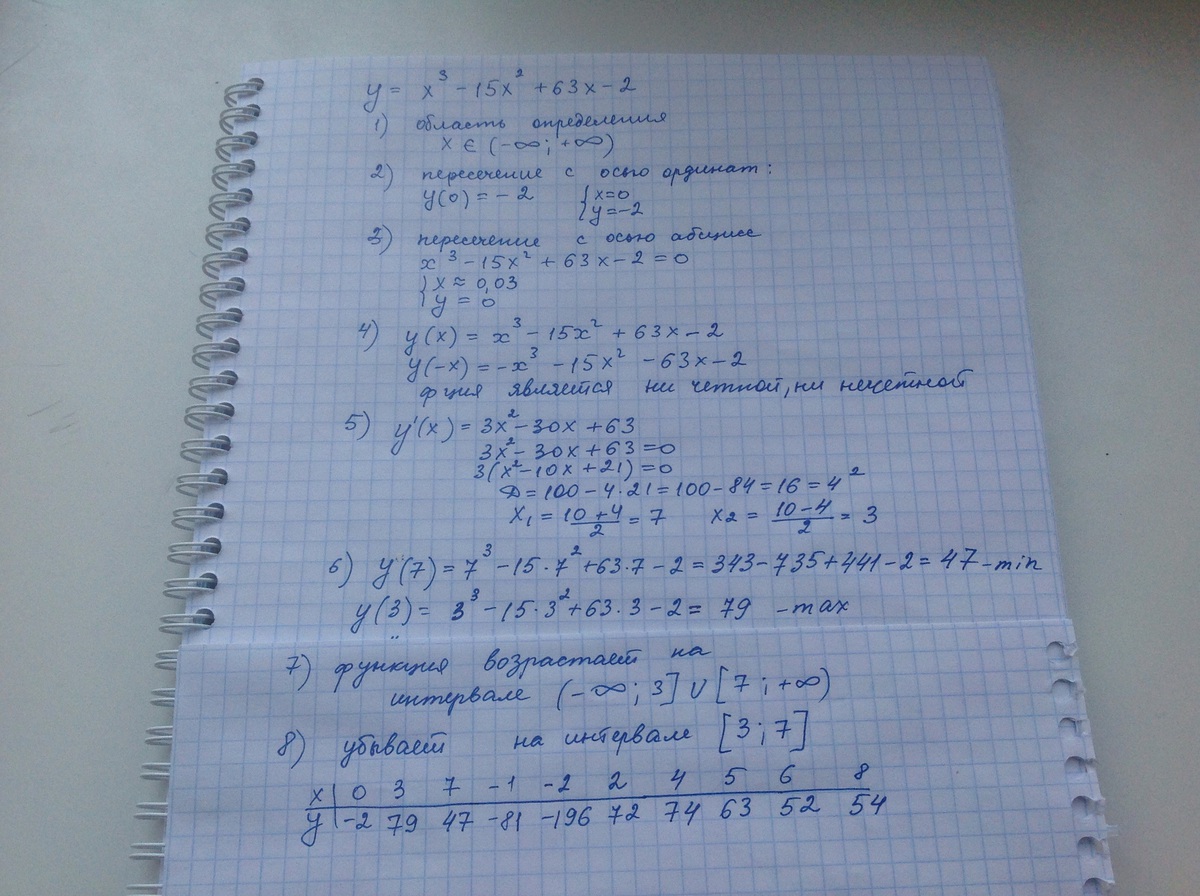 y = x³ - 15x² + 63x - 2
1) область определения
x ∈ (-∞; +∞)
2) пересечение с осью ординат:
y(0) = -2 { x=0
y=-2
3) пересечение с осью абсцисс
x³ - 15x² + 63x - 2 = 0
{ x ≈ 0,03
y = 0
4) y(x) = x³ - 15x² + 63x - 2
y(-x) = -x³ - 15x² - 63x - 2
фция является ни четной, ни нечетной
5) y'(x) = 3x² - 30x + 63
3x² - 30x + 63 = 0
3(x² - 10x + 21) = 0
D = 100 - 4·21 = 100 - 84 = 16 = 4²
x₁ = (10+4)/2 = 7 x₂ = (10-4)/2 = 3
6) y(7) = 7³ - 15·7² + 63·7 - 2 = 343 - 735 + 441 - 2 = 47 - min
y(3) = 3³ - 15·3² + 63·3 - 2 = 79 - max
7) функция возрастает на
интервале (-∞; 3] ∪ [7; +∞)
8) убывает на интервале [3; 7]
x | 0 3 7 -1 -2 2 4 5 6 8
y | -2 79 47 -81 -196 72 74 63 52 54